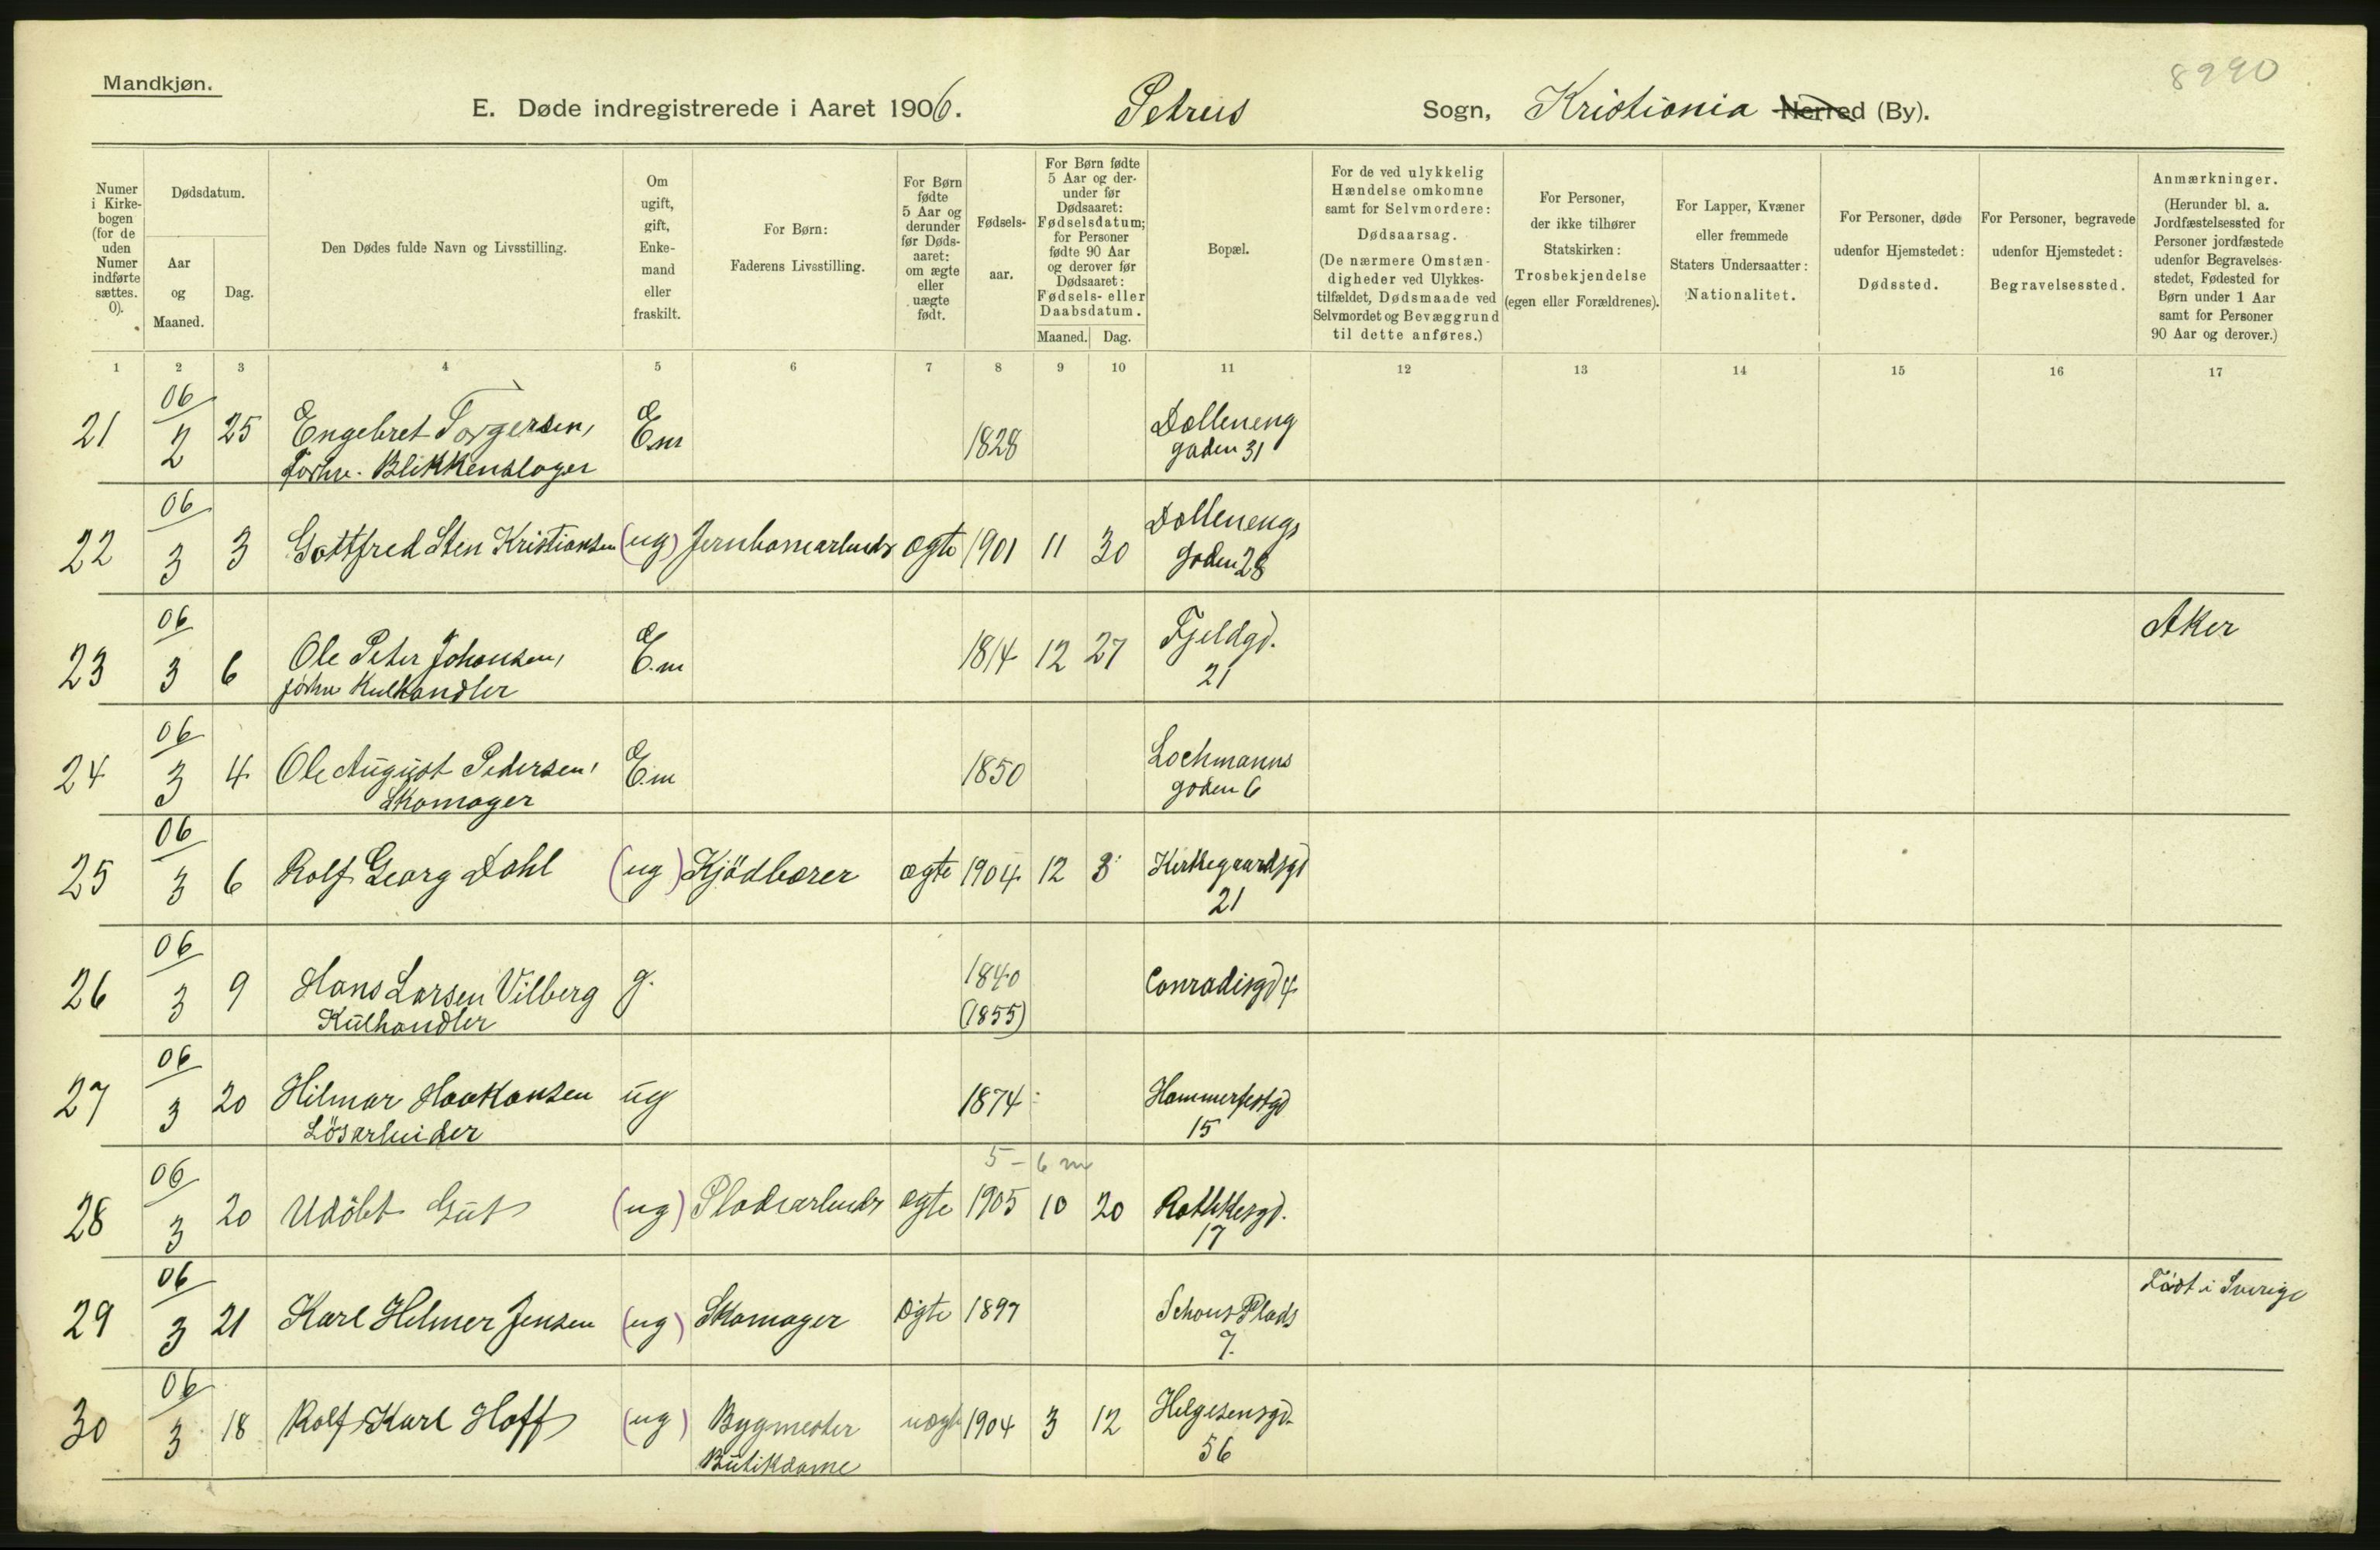 Mandkjøn.
8990
E. Døde indregistrerede i Aaret 1906. Petrus Sogn, Kristiania Herred (By).
Numer i Kirkebogen (for de uden Numer indførte sættes. 0).
Dødsdatum.
Aar og Maaned.
Dag.
Den Dødes fulde Navn og Livsstilling.
Om ugift, gift, Enkemand eller fraskilt.
For Børn: Faderens Livsstilling.
For Børn fødte 5 Aar og derunder før Dødsaaret: om ægte eller uægte født.
Fødselsaar.
For Børn fødte 5 Aar og derunder før Dødsaaret: Fødselsdatum; for Personer fødte 90 Aar og derover før Dødsaaret: Fødsels- eller Daabsdatum.
Maaned. Dag.
Bopæl.
For de ved ulykkelig Hændelse omkomne samt for Selvmordere: Dødsaarsag. (De nærmere Omstændigheder ved Ulykkestilfældet, Dødsmaade ved Selvmordet og Bevæggrund til dette anføres.)
For Personer, der ikke tilhører Statskirken: Trosbekjendelse (egen eller Forældrenes).
For Lapper, Kvæner eller fremmede Staters Undersaatter: Nationalitet.
For Personer, døde udenfor Hjemstedet: Dødssted.
For Personer, begravede udenfor Hjemstedet: Begravelsessted.
Anmærkninger. (Herunder bl. a. Jordfæstelsessted for Personer jordfæstede udenfor Begravelsesstedet, Fødested for Børn under 1 Aar samt for Personer 90 Aar og derover.)
1 2 3 4 5 6 7 8 9 10 11 12 13 14 15 16 17
21 06/2 25 Engebret Torgersen, E.m 1828 Dælleneng
forhv. Blikkenslager gaden 31
22 06/3 3 Gottfred Sten Kristiansen (ug) Jernbanearbeider ægte 1901 11 30 Dællenengs
gaden 28
23 06/3 6 Ole Peter Johansen, E.m 1814 12 27 Fjeldgd. Aker
forhv Kulhandler 21
24 06/3 4 Ole August Pedersen, E.m 1850 Lochmanns
Skomager gaden 6
25 06/3 6 Rolf Georg Dahl (ug) Kjödbærer ægte 1904 12 3 Kirkegaardsgd
21
26 06/3 9 Hans Larsen Vilberg g. 1840 Conradisgd 4
Kulhandler (1855)
27 06/3 20 Hilmar Haakansen ug 1874 Hammerfestgd
Lösarbeider 15
5 - 6 m
28 06/3 20 Udöbt Gut (ug) Pladsarbeider ægte 1905 10 20 Rathkesgd.
17
29 06/3 21 Karl Helmer Jensen (ug) Skomager ægte 1897 Schous Plads Födt i Sverige
7.
30 06/3 18 Rolf Karl Hoff (ug) Bygmester uægte 1904 3 12 Helgesensgd.
Butikdame 56